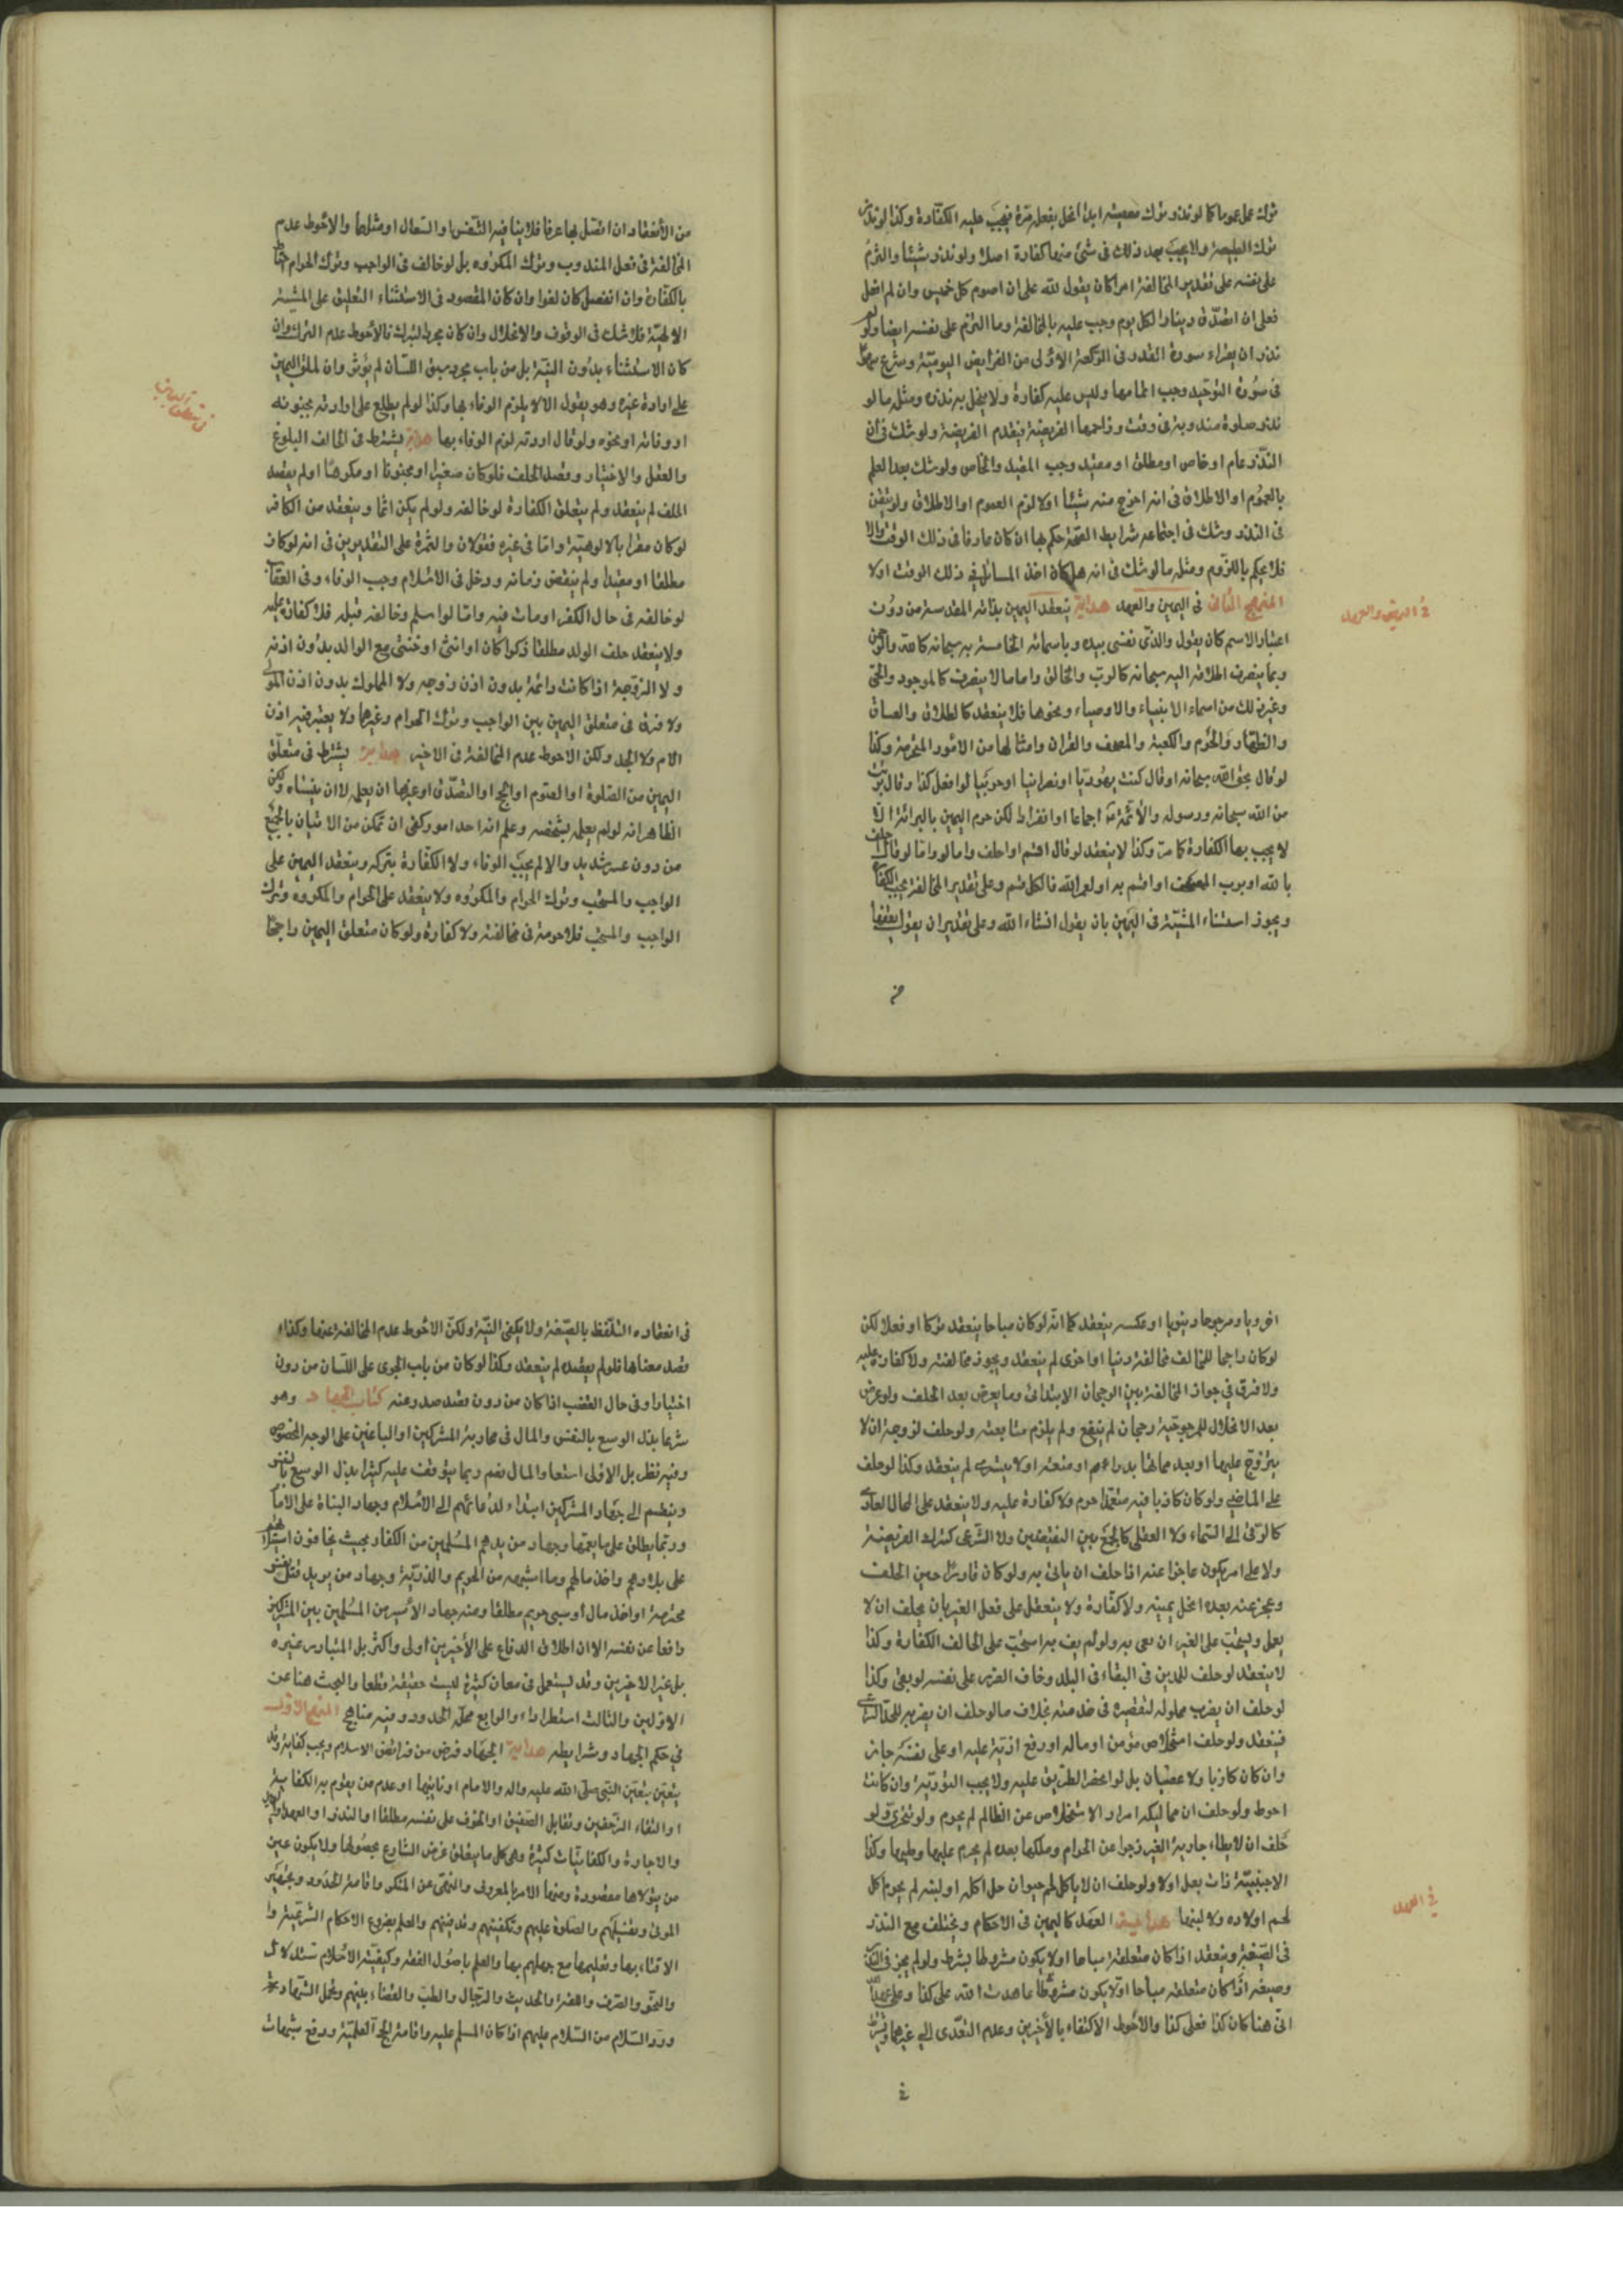 ترك عمل عموما كما لو نذر ترك معصية ابدا انحل بفعل مرة فيجب عليه الكفارة وكذا لو نذر
ترك الطبيعة ولا يجب بعد ذلك في شئ منها كفارة اصلا ولو نذر شيئا والتزم
على نفسه على تقدير المخالفة امرا كان يقول لله على ان اصوم كل خميس وان لم افعل
فعلى ان اتصدق دينارا لكل يوم وجب عليه بالمخالفة وما التزم على نفسه ايضا ولو
نذر ان يقراء سورة القدر في الركعة الاولى من الفرايض اليومية وشرع سهوا
في سورة التوحيد وجب اتمامها وليس عليه كفارة ولا يخل به نذره ومثله ما لو
نذر صلوة مندوبة في وقت وزاحمها الفريضة فيقدم الفريضة ولو شك في ان
النذر عام او خاص او مطلق او مقيد وجب المقيد والخاص ولو شك بعد العلم
بالعموم او الاطلاق في انه اخرج منه شيئا اولا لزم العموم او الاطلاق ولو تيقن
في النذر وشك في اجتماعه شرايط الصحة حكم بها ان كان عارفا في ذلك الوقت والا
فلا يحكم باللزوم ومثله ما لو شك في انه هل كان اخذ المسائل في ذلك الوقت اولا
المنهج الثانى في اليمين والعهد هداية ينعقد اليمين بذاته المقدسة من دون
في اليمين والعهد
اعتبار الاسم كان يقول والذى نفسى بيده وباسمائه الخاصة به سبحانه كالله والرحمن
وبما ينصرف اطلاقه اليه سبحانه كالرب والخالق واما ما لا ينصرف كالموجود والحى
وغير ذلك من اسماء الانبياء والاوصياء ونحوها فلا ينعقد كالطلاق والعتاق
والظهار والحرم والكعبة والمصحف والقران وامثالها من الامور المحترمة وكذا
لو قال بحق الله سبحانه او قال كنت يهوديا او نصرانيا او حربيا لو افعل كذا وقال برئت
من الله سبحانه ورسوله والائمة اجماعا او انفراد لكن حرم اليمين بالبرائة الا
لا يجب بها الكفارة كما مر وكذا لا ينعقد لو قال اقسم او احلف واما لو قال احلف
بالله او برب المصحف او اقسم به او لعمر الله فالكل قسم وعلى تقدير المخالفة يجب الكفارة
ويجوز استثناء المشية في اليمين بان يقول انشاء الله وعلى تقدير ان يقول
من
من الانعقاد ان اتصل بها عرفا فلا ينافيه التنفس او السعال او مثلهما والاحوط عدم
المخالفة في فعل المندوب وترك المكروه بل لو خالف في الواجب وترك الحرام
بالكفارة وان انفصل كان لغوا وان كان المقصود في الاستثناء التعليق على المشية
الالهية فلا شك في الوقوف والانحلال وان كان مجرد التبرك فالاحوط عدم الترك وان
كان الاستثناء بدون النية بل من باب مجرد سبق اللسان لم يؤثر وان لملق اليمين
على ارادة غيره وهو يقول الا لا يلزم الوفاء بها وكذا لو لم يطلع على ارادته بجنونه
او وفاته او نحوه ولو قال اردته لزم الوفاء بها هداية يشترط في الحالف البلوغ
والعقل والاختيار وقصد الحلف فلو كان صغيرا او مجنونا او مكرها او لم يقصد
الحلف لم ينعقد ولم يتعلق الكفارة لو خالفه ولو لم يكن اثما وينعقد من الكافر
لو كان مقرا بالالوهية واما في غيره فقولان والثمرة على التقديرين في انه لو كان
مطلقا او مقيدا ولم ينقض زمانه ودخل في الاسلام وجب الوفاء وفى العقاب
لو خالفه في حال الكفر او مات فيه واما لو اسلم وخالفه قبله فلا كفارة عليه
ولا ينعقد حلف الولد مطلقا ذكرا كان او انثى او خنثى مع الوالد بدون اذنه
ولا الزوجة اذا كانت دائمة بدون اذن زوجه ولا المملوك بدون اذن المولى
ولا فرق في متعلق اليمين بين الواجب وترك الحرام وغيرهما ولا يعتبر فيه اذن
الام ولا الجد ولكن الاحوط عدم المخالفة في الاخير هداية يشترط في متعلق
اليمين من الصلوة او الصوم او الحج او التصدق او غيرها ان يعلم لا ان ينساه ولكن
الظاهر انه لو لم يعلم بشخصه وعلم انه احد امور كفى ان تمكن من الاتيان بالجميع
من دون عسر شديد والا لم يجب الوفاء ولا الكفارة بتركه وينعقد اليمين على
الواجب والمستحب وترك الحرام والمكروه ولا ينعقد على الحرام والمكروه وترك
الواجب والمستحب فلا حرمة في مخالفته ولا كفارة ولو كان متعلق اليمين راجحا
اخرويا ومرجوحا دنيويا او عكسه ينعقد كما انه لو كان مباحا ينعقد تركا او فعلا لكن
لو كان راجحا للمخالف مخالفته دنيا او اخرى لم ينعقد ويجوز مخالفته ولا كفارة عليه
ولا فرق في جواز المخالفة بين الرجحان الابتدائى وما يعرض بعد الحلف ولو عرض
بعد الانحلال للمرجوحية رجحان لم ينفع ولم يلزم متابعته ولو حلف لزوجة ان لا
يتزوج عليها او بعد مماتها بدراهم او متعة او لا يتسرى لم ينعقد وكذا لو حلف
على الماضى ولو كان كاذبا فيه متعمدا حرم ولا كفارة عليه ولا ينعقد على المحال العادى
كالترقى الى السماء ولا العقلى كالجمع بين النقيضين ولا الشرعى كترك الفريضة
ولا على امر يكون عاجزا عنه اذا حلف ان ياتى به ولو كان قادرا حين الحلف
وعجز عنه بعده انحل يمينه ولا كفارة ولا ينعقد على فعل الغير بان يحلف ان لا
يعمل ويستحب على الغير ان يفى به ولو لم يف به استحب على الحالف الكفارة وكذا
لا ينعقد لو حلف للمدين في البقاء في البلد وخاف الضرر على نفسه لو بقى وكذا
لو حلف ان يضرب مملوكه لتقصيره في خدمته بخلاف ما لو حلف ان يضربه للحد الشرعى
فينعقد ولو حلف استخلاص مؤمن او ماله او رفع اذية عليه او على نفسه جاز
وان كان كاذبا ولا عصيان بل لو انحصر الطريق عليه ولا يجب التورية وان كانت
احوط ولو حلف ان مماليكه احرار والاستخلاص عن الظالم لم يحرم ولو تحرى ولو
حلف ان لا يطاء جارية الغير زجرا عن الحرام وملكها بعده لم يحرم عليها وطيها وكذا
الاجنبية ذات بعل اولا ولو حلف ان لا ياكل لحم حيوان حل اكله او لبنه لم يحرم اكل
لحم اولاده ولا لبنها هداية العهد كاليمين في الاحكام ويختلف مع النذر
في العهد
في الصيغة وينعقد اذا كان متعلقه مباحا او لا يكون مشروطا بشرط ولو لم يجز في النذر
وصيغه اذا كان متعلقه مباحا او لا يكون مشروطا عاهدت الله على كذا وعلى عهد الله
انى هنا كان كذا فعلى كذا والاحوط الاكتفاء بالاخيرين وعدم التعدى الى غيرهما
في
في انعقاده التلفظ بالصيغة ولا يكفى النية ولكن الاحوط عدم المخالفة عنها وكذا
قصد معناها فلو لم يقصده لم ينعقد وكذا لو كان من باب الجرى على اللسان من دون
اختيار او في حال الغضب اذا كان من دون قصد صدر عنه كتاب الجهاد وهو
شرعا بذل الوسع بالنفس والمال في محاربة المشركين او الباغين على الوجه المخصوص
وفيه نظر بل الاولى اسقاط المال نعم ربما يتوقف عليه كثيرا بذل الوسع بالنفس
وينقسم الى جهاد المشركين ابتداء لدعائهم الى الاسلام وجهاد البغاة على الامام
وربما يطلق على ما يعمها وجهاد من يدهم المسلمين من الكفار بحيث يخافون استيلائهم
على بلادهم واخذ مالهم وما اشبهه من الحريم والذرية وجهاد من يريد قتل نفس
محترمة او اخذ مال او سبى حريم مطلقا ومنه جهاد الاسير من المسلمين بين المشركين
دافعا عن نفسه الا ان اطلاق الدفاع على الاخيرين اولى واكثر بل المتبادر غيره
بل غير الاخيرين وقد يستعمل في معان كثيرة ليست حقيقة قطعا والبحث هنا عن
الاولين والثالث استطرادا والرابع محله الحدود وفيه مناهج المنهج الاول
في حكم الجهاد وشرايطه هداية الجهاد فرض من فرائض الاسلام ويجب كفاية وقد
يتعين بتعين النبى صلى الله عليه واله والامام او نائبهما او عدم من يقوم به الكفاية
او التقاء الزحفين وتقابل الصفين او الخوف على نفسه مطلقا او النذر او العهد
والاجارة والكفائيات كثيرة وهى كل ما يتعلق غرض الشارع بحصولها ولا يكون عين
من يتولاها مقصودة ومنها الامر بالمعروف والنهى عن المنكر واقامة الحدود وتجهيز
الموتى وتغسيلهم والصلوة عليهم وتكفينهم وتدفينهم والعلم بفروع الاحكام الشرعية و
الافتاء بها وتعليمها مع جهلهم بها والعلم باصول الفقه وكيفية الاستدلال
والنحو والصرف واللغة والحديث والرجال والطب والقضاء بينهم وتحمل الشهادة
ورد السلام من السلام عليهم اذا كان المسلم عليه واقامة الحجة العلمية ودفع شبهات